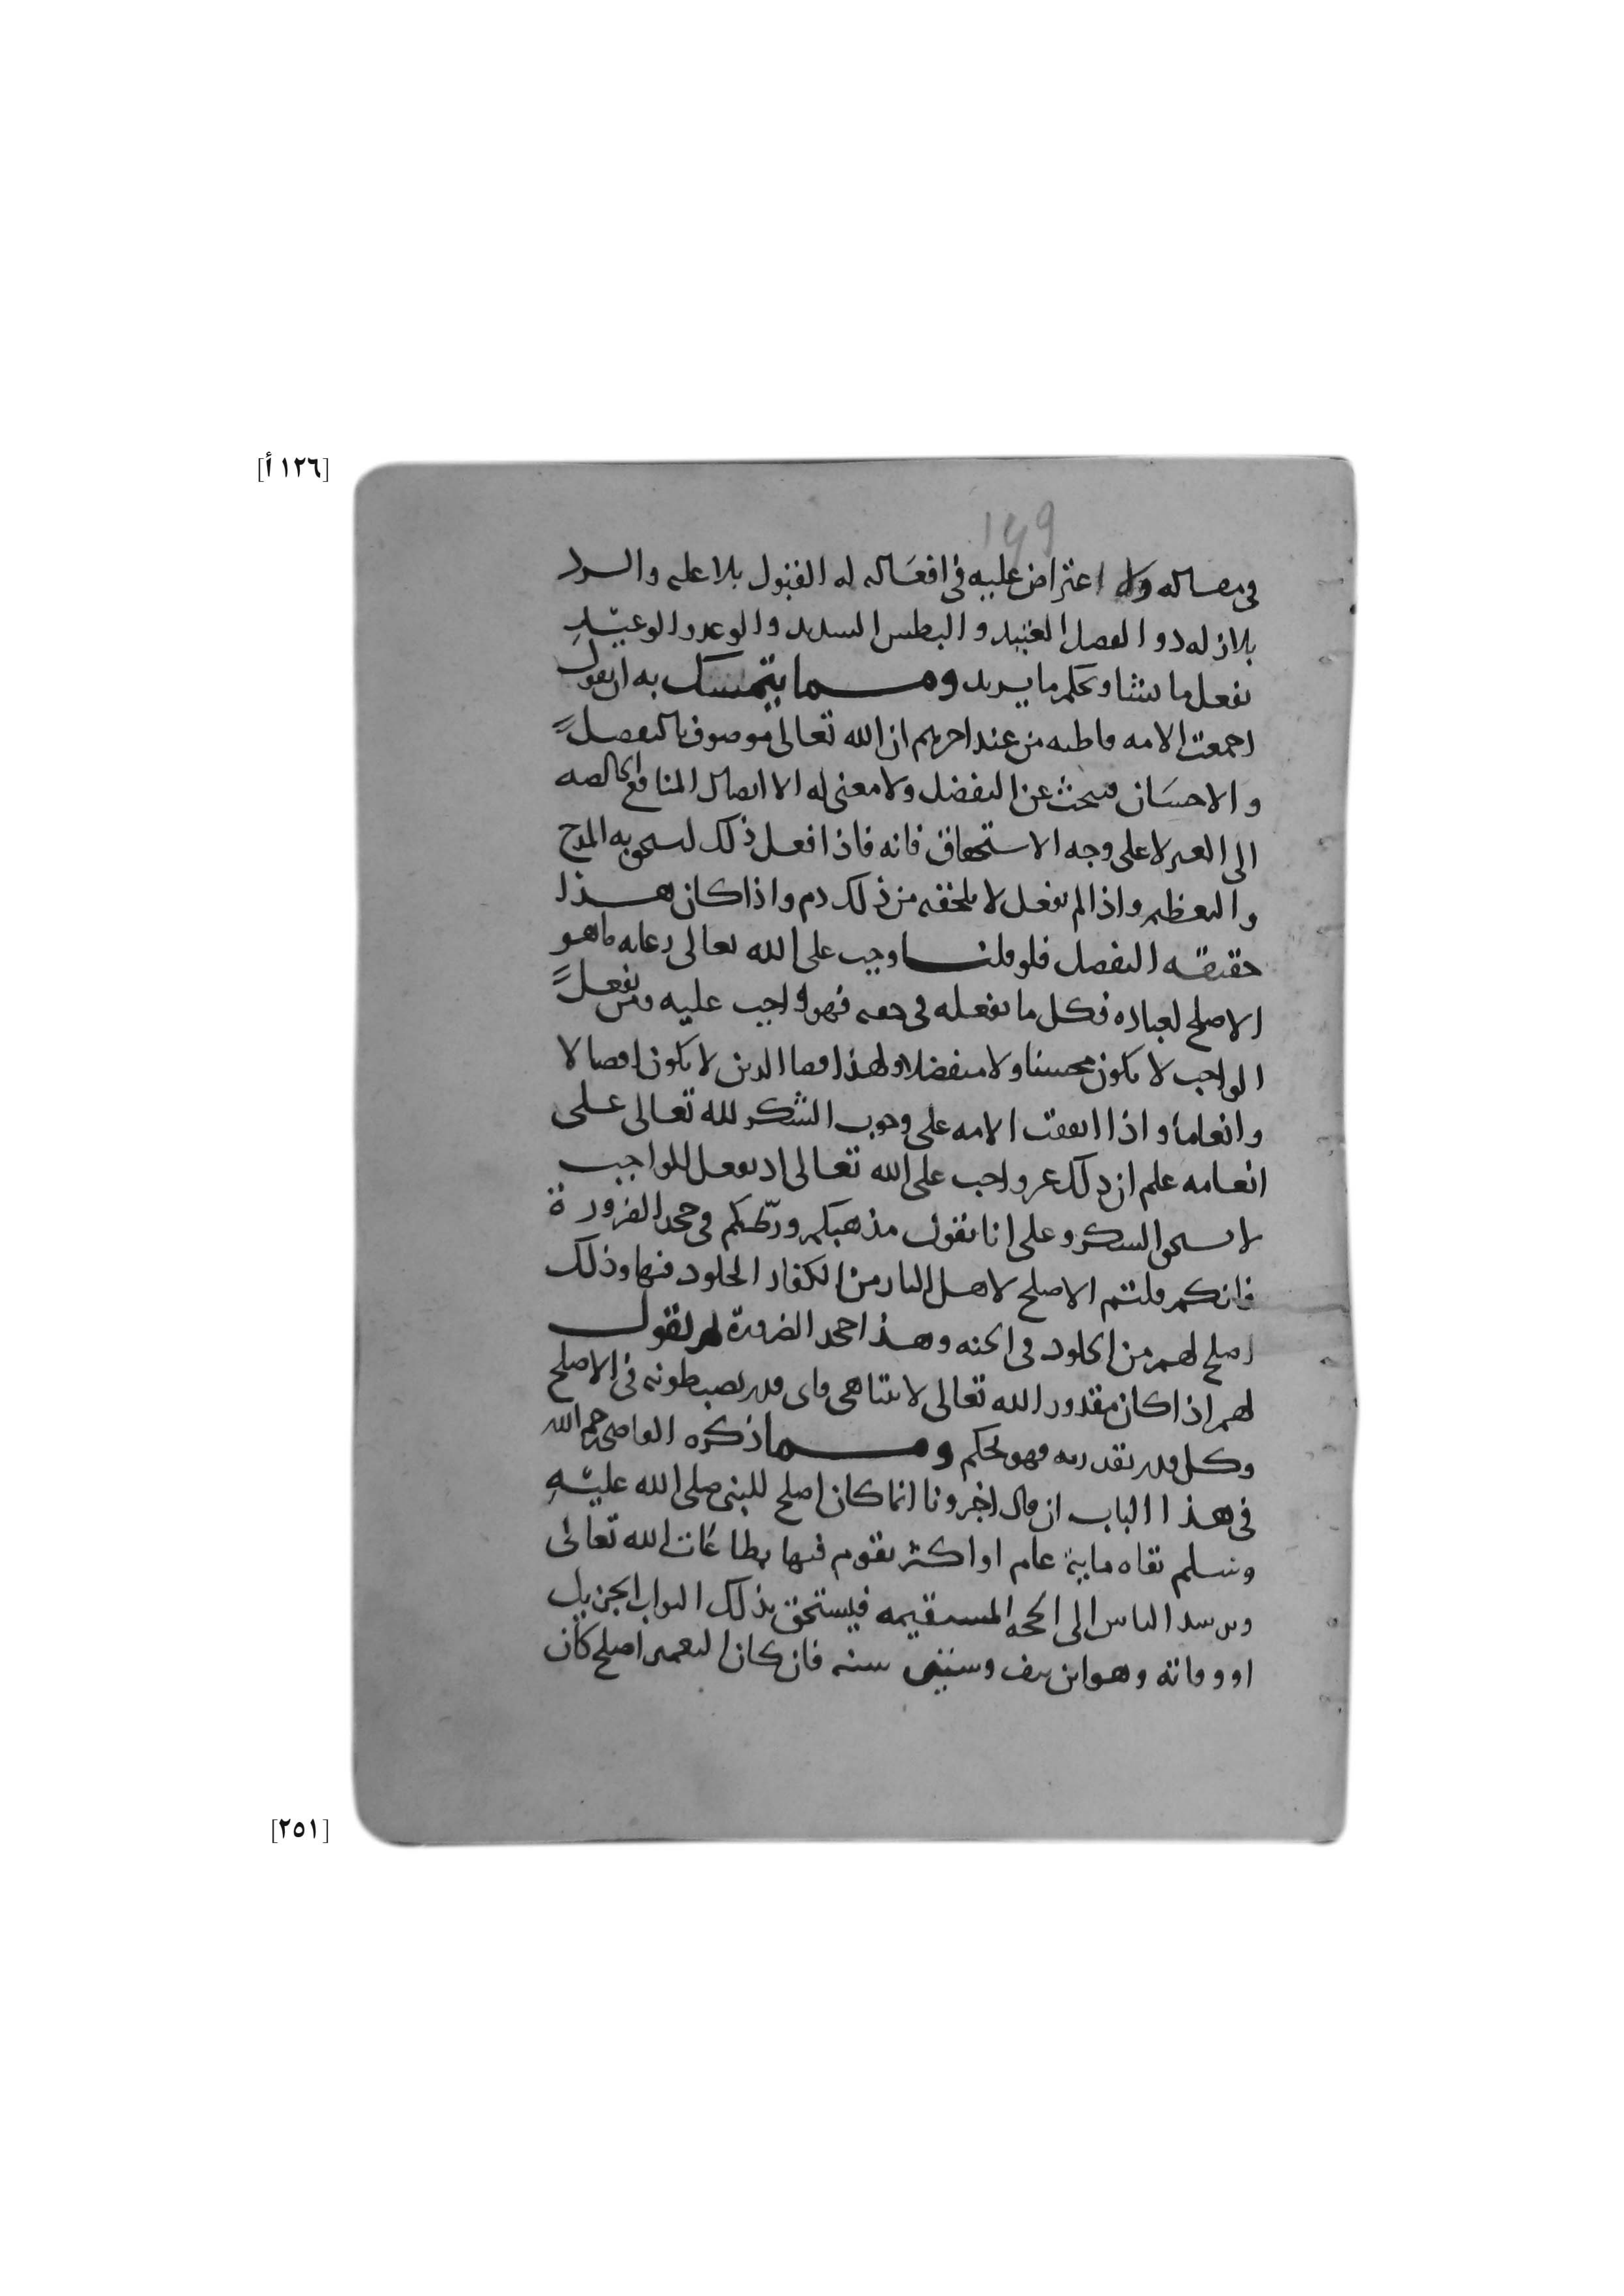 [١٢٦ أ]
149
في مصاله ولا اعتراض عليه في افعاله له القبول بلا عله والرد
بلا زله ذو الفضل العتيد والبطش الشديد والوعد والوعيد
يفعل ما يشا ويحكم ما يريد ومما يتمسك به ان يقول
اجمعت الامه قاطبه من عند اخرهم ان الله تعالى موصوف بالتفضل
والاحسان فنبحث عن التفضل ولا معنى له الا ايصال المنافع الخالصه
الى الغير لا على وجه الاستحقاق فانه فاذا فعل ذلك استحق به المدح
والتعظيم واذا لم يفعل لا يلحقه من ذلك ذم واذا كان هذا
حقيقه التفضل فلو قلنا وجب على الله تعالى رعايه ما هو
الاصلح لعباده فكل ما يفعله في حقه فهو واجب عليه ومن يفعل
الواجب لا يكون محسنا ولا متفضلا ولهذا قضا الدين لا يكون افضالا
وانعاما واذا اتفقت الامه على وجوب الشكر لله تعالى على
انعامه علم ان ذلك غير واجب على الله تعالى اذ بفعل للواجب
لا يستحق الشكر وعلى انا نقول مذهبكم ورطكم في جحد الضرورة
فانكم قلتم الاصلح لاهل النار من الكفار الخلود فيها وذلك
اصلح لهم من الخلود في الجنه وهذا جحد الضرورة ثم نقول
لهم اذا كان مقدور الله تعالى لا يتناهى فاى قدر تضبطونه في الاصلح
وكل قدر تقدرونه فهو تحكم ومما ذكره القاضى رحمه الله
في هذا الباب ان قال اخبرونا انما كان اصلح للنبي صلى الله عليه
وسلم بقاه ماية عام او اكثر يقوم فيها بطاعات الله تعالى
ويرشد الناس الى المحجه المستقيمه فيستحق بذلك الثواب الجزيل
او وفاته وهو ابن نيف وستين سنه فان كان التعمير اصلح كان
[٢٥١]